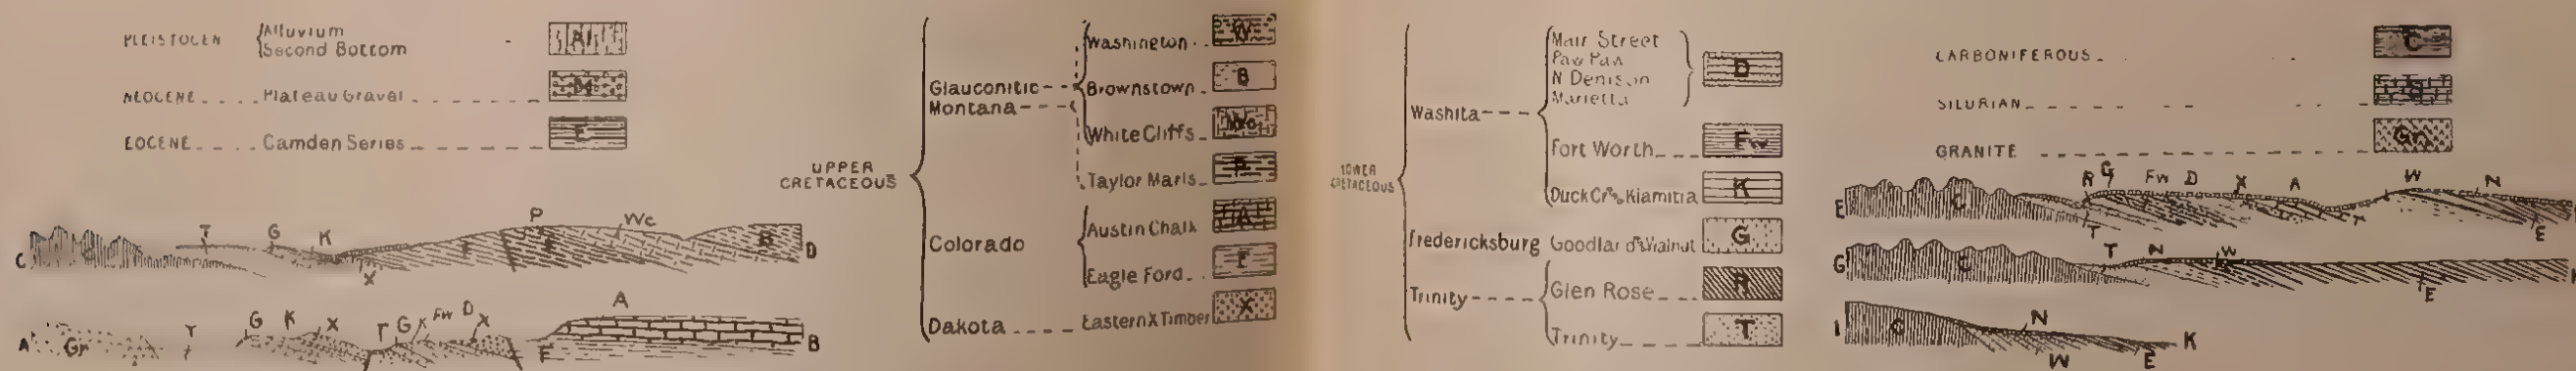 PLEISTOCEN Alluvium
Second Bottom Al
NEOCENE Plateau Gravel M
EOCENE Camden Series E
C T G K X P Wc B D
A Gr T G K X T G K Fw D X F A B
UPPER
CRETACEOUS
Glauconitic
Montana
Washington W
Brownstown B
White Cliffs Wc
Taylor Marls P
Colorado
Austin Chalk A
Eagle Ford F
Dakota Eastern X Timber X
LOWER
CRETACEOUS
Washita
Main Street
Paw Paw
N Denison
Marietta
D
Fort Worth Fw
Duck Cr Kiamitia K
Fredericksburg Goodland Walnut G
Trinity
Glen Rose R
Trinity T
CARBONIFEROUS C
SILURIAN S
GRANITE Gr
E C R G Fw D X A W N T E
G C T N W E
I C N W E K